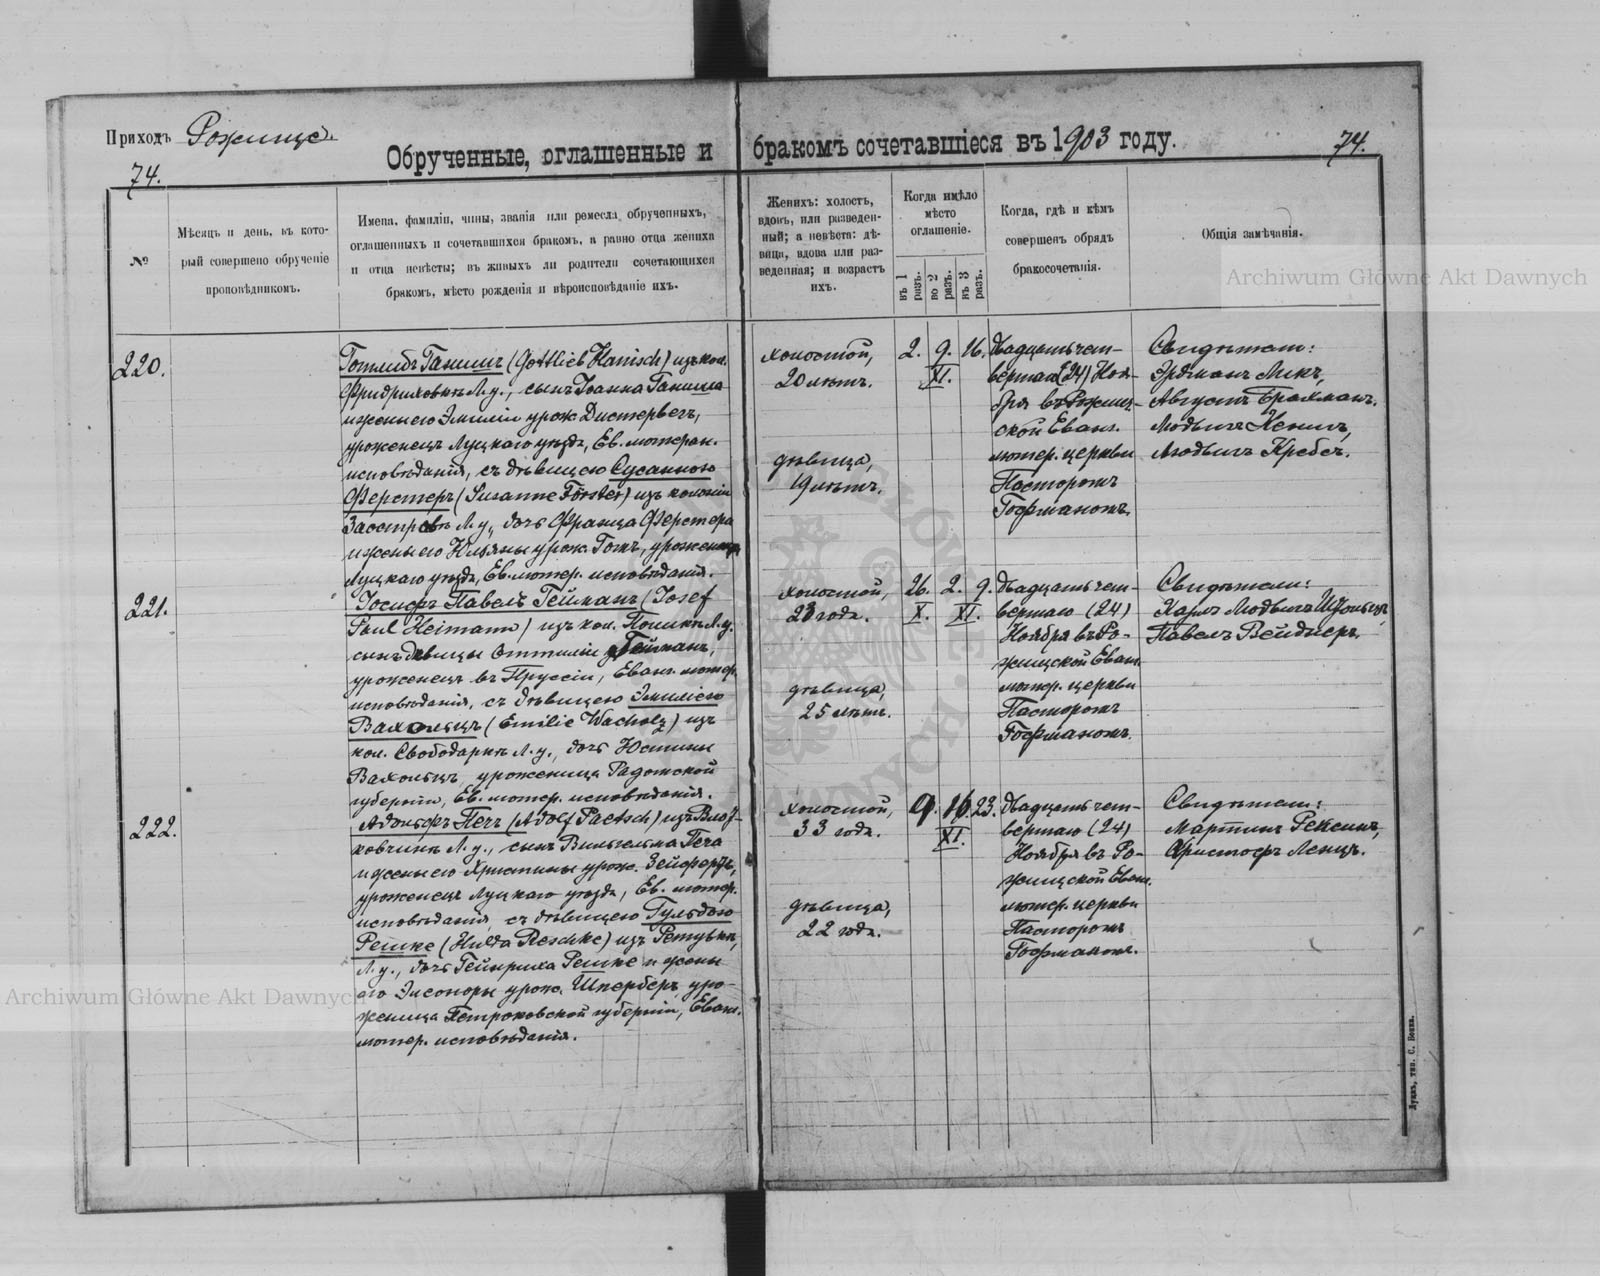 Приходъ Рожище.
Обрученные, оглашенные и бракомъ сочетавшіеся въ 1903 году.
74.
74.
№
Мѣсяцъ и день, въ кото-
рый совершено обрученіе
проповѣдникомъ.
Имена, фамиліи, чины, званія или ремесла обрученныхъ,
оглашенныхъ и сочетавшихся бракомъ, а равно отца жениха
и отца невѣсты; въ живыхъ ли родители сочетающихся
бракомъ, мѣсто рожденія и вѣроисповѣданіе ихъ.
Женихъ: холостъ,
вдовъ, или разведен-
ный; а невѣста: дѣ-
вица, вдова или раз-
веденная; и возрастъ
ихъ.
Когда имѣло
мѣсто
оглашеніе.
въ 1 разъ.
во 2 разъ.
въ 3 разъ.
Когда, гдѣ и кѣмъ
совершенъ обрядъ
бракосочетанія.
Общія замѣчанія.
220.
Готлибъ Ганишъ (Gottlieb Hanisch) изъ кол.
Фридриховки Л.у., сынъ Іоанна Ганиша
и жены его Эмиліи урож. Дистервегъ,
уроженецъ Луцкаго уѣзда, Ев. лютеран.
исповѣданія, съ дѣвицею Сусанною
Ферстеръ (Susanne Förster) изъ колоніи
Л.у., дочь Франца Ферстера
и жены его Юльяны урож. Готъ, уроженица
Луцкаго уѣзда, Ев. лютер. исповѣданія.
холостой,
20 лѣтъ.
дѣвица,
19 лѣтъ.
2. 9. 16.
XI.
Двадцать чет-
вертаго (24) Ноя-
бря въ Рожищ-
ской Еванг.
лютер. церкви
Пасторомъ
Гофманомъ.
Свидѣтели:
Эрдманъ Микъ,
Августъ Брахманъ.
Людвигъ Кенигъ,
Людвигъ Кребсъ.
221.
Іосифъ Павелъ Гейманъ (Josef
Paul Heimann) изъ кол. Л.у.
сынъ дѣвицы Оттиліи Гейманъ,
уроженецъ въ Пруссіи, Еванг. лютер.
исповѣданія, съ дѣвицею Эмиліею
Вахольцъ (Emilie Wacholz) изъ
кол. Свободарки Л.у., дочь Юстины
Вахольцъ, уроженица Радомской
губерніи, Ев. лютер. исповѣданія.
холостой,
23 года.
дѣвица,
25 лѣтъ.
26. 2. 9.
X. XI.
Двадцать чет-
вертаго (24)
Ноября въ Ро-
жищской Еван.
лютер. церкви
Пасторомъ
Гофманомъ.
Свидѣтели:
Карлъ Людвигъ Шольцъ,
Павелъ Вейднеръ.
222.
Адольфъ Печъ (Adolf Paetsch) изъ
Л.у., сынъ Вильгельма Печа
и жены его Христины урож. Зейфертъ,
уроженецъ Луцкаго уѣзда, Ев. лютер.
исповѣданія, съ дѣвицею Гульдою
Решке (Hulda Reschke) изъ
Л.у., дочь Гейнриха Решке и жены
его Элеоноры урож. Шперберъ, уро-
женица Петроковской губерніи, Еванг.
лютер. исповѣданія.
холостой,
33 года.
дѣвица,
22 года.
9. 16. 23.
XI.
Двадцать чет-
вертаго (24)
Ноября въ Ро-
жищской Еванг.
лютер. церкви
Пасторомъ
Гофманомъ.
Свидѣтели:
Мартинъ Рексинъ,
Христофъ Ленцъ.
Луцкъ, тип. С. Бонка.
Archiwum Główne Akt Dawnych
Archiwum Główne Akt Dawnych